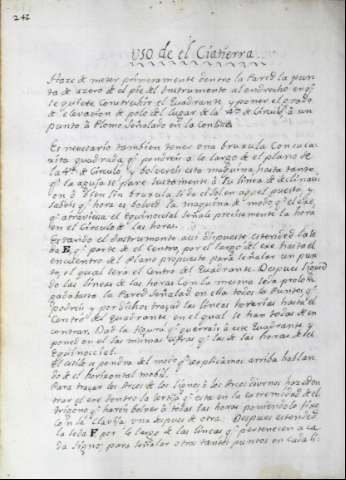 242
USO de el Ciatierra
Hase de meter primeramente dentro la Pared la pun
ta de azero de el pie del Instrumento al endrecho en q̃
se quiere Construhir el Quadrante y poner el grado
de elavacion de polo del lugar de la 4ᵗᵃ de Circulo à un
punto à Plomo Señalado en la
Es necesario tambien tener una bruxula Con su ca
xita quadrada q̃ pondreis a lo largo de el plano de
la 4ᵗᵃ de Circulo y bolvereis esta maquina hasta tanto
q̃ la aguja se pare Justamente à su linea de declinacion
ò Disen bruxula si da el Sol en aquel puesto, y
sabeis q̃ hora es bolved la maquina de modo q̃ el exe
q̃ atraviesa el equinoccial señale precisamente la hora
en el Circulo de las horas.
Estando el Instrumento assi dispuesto estended la se
da E, q̃ parte de el Centro, por el largo de el exe hasta el
encuentro del Plano propuesto para señalar un pun
to, el qual sera el Centro del Quadrante. Despues
de las lineas de las horas Con la misma seda prolon
gada hasta la Pared Señalad en ella todos los Puntos q̃
podreis y por dichos trazad las lineas horarias hasta el
Centro del Quadrante en el qual se han todas de en
contrar. Dad la figura q̃ querrais à ese Quadrante y
poned en el las mismas cifras q̃ las de las horas de el
Equinoccial.
El estilo se pondra del modo q̃ explicamos arriba hablan
do de el horizontal mobil.
Para trazar los Arcos de los Signos ò los Arcos diurnos haced en
trar el exe dentro la q̃ esta en la extremidad de el
Trigono q̃ hareis bolver à todas las horas poniendolo fixo
Con la Clavija una despues de otra. Despues estended
la seda F por lo largo de las lineas q̃ pertenecen a ca
da signo, para señalar otros tantos puntos en cada li